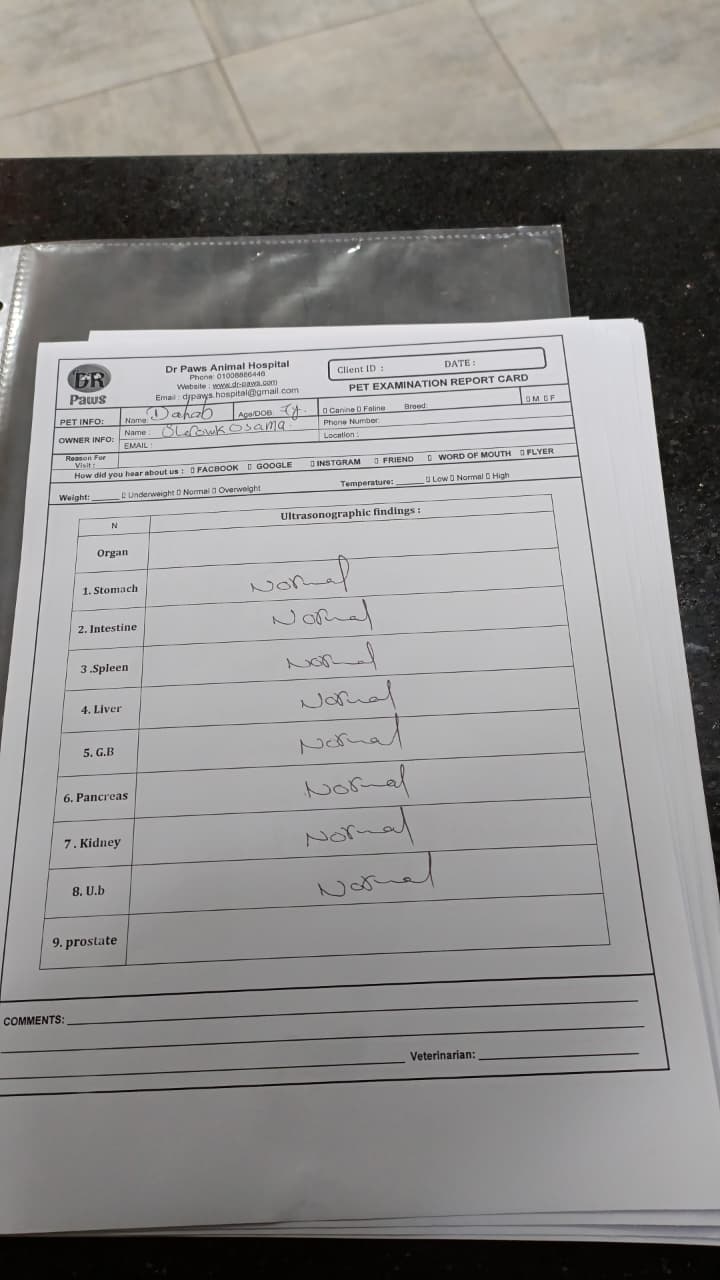 DR
Paws
Dr Paws Animal Hospital
Phone: 01008886446
Website : www.dr-paws.com
Email : drpaws.hospital@gmail.com
Client ID :
DATE :
PET EXAMINATION REPORT CARD
PET INFO:
Name: Dahab
Age/DOB:
Canine
Feline
Breed:
M
F
OWNER INFO:
Name : Osama
Phone Number:
EMAIL :
Location :
Reason For
Visit :
How did you hear about us :
FACBOOK
GOOGLE
INSTGRAM
FRIEND
WORD OF MOUTH
FLYER
Weight:
Underweight
Normal
Overweight
Temperature:
Low
Normal
High
N
Ultrasonographic findings :
Organ
1. Stomach Normal
2. Intestine Normal
3 .Spleen Normal
4. Liver Normal
5. G.B Normal
6. Pancreas Normal
7 . Kidney Normal
8. U.b Normal
9. prostate
COMMENTS:
Veterinarian: